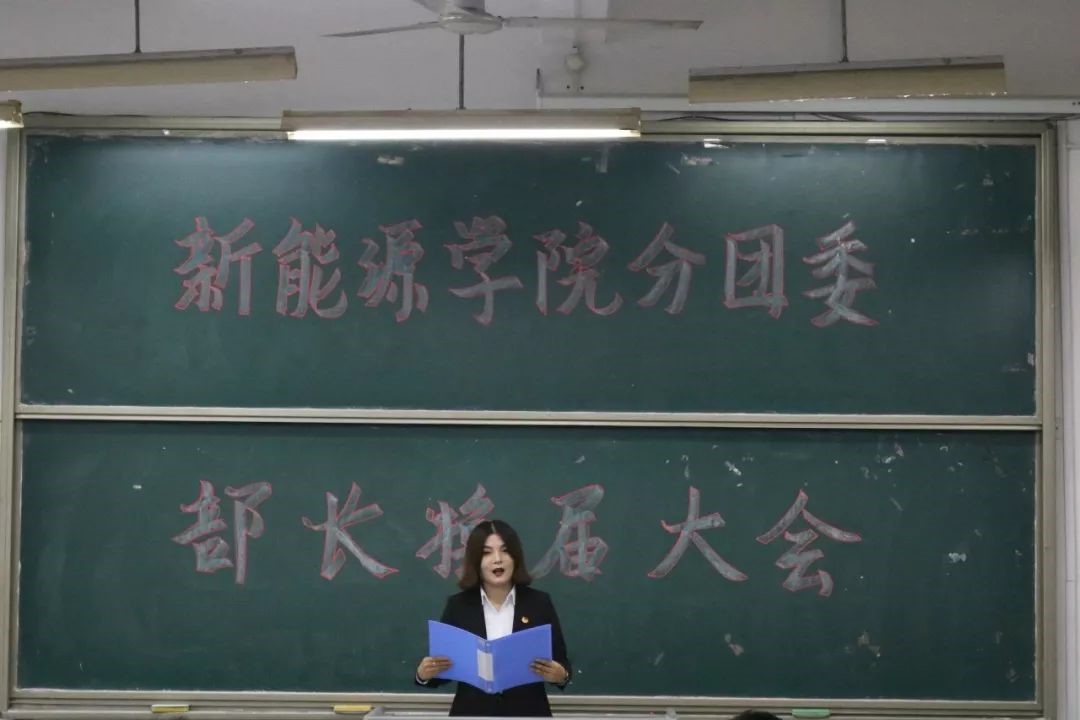 新能源学院分团委
部长换届大会